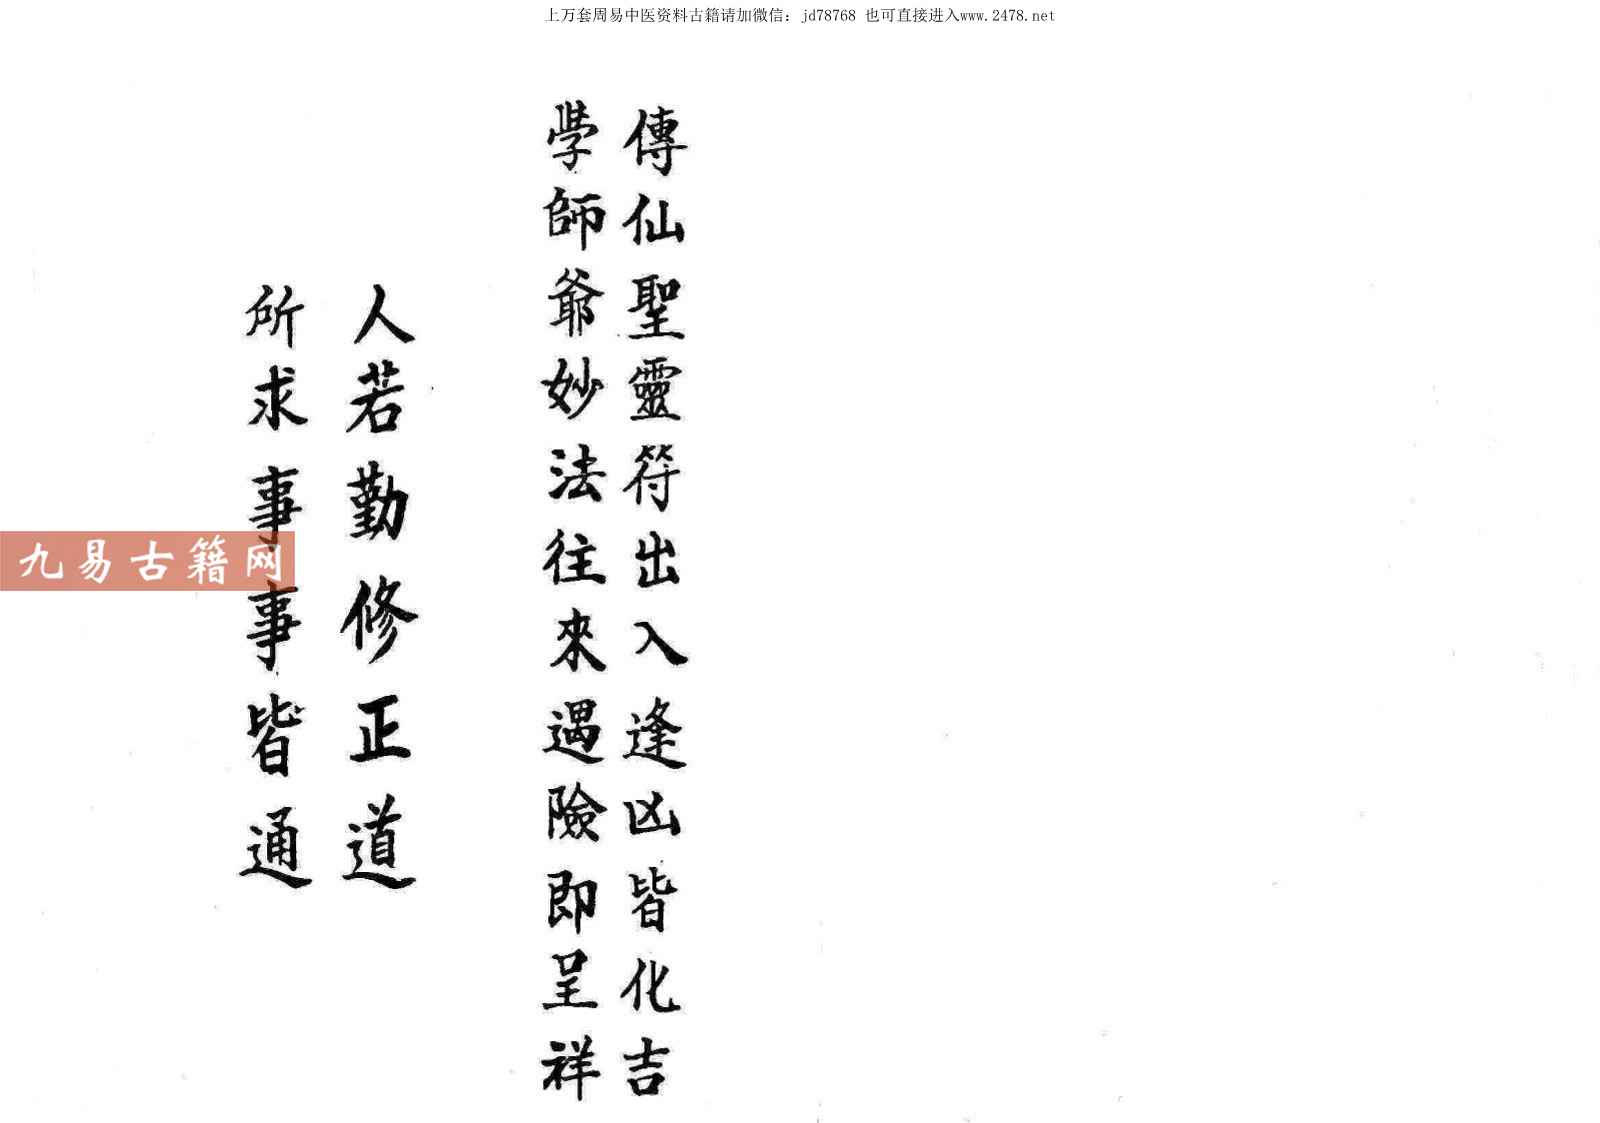 上万套周易中医资料古籍请加微信：jd78768 也可直接进入www.2478.net
傳仙聖靈符出入逢凶皆化吉
學師爺妙法往來遇險即呈祥
人若勤修正道
所求事事皆通
九易古籍网